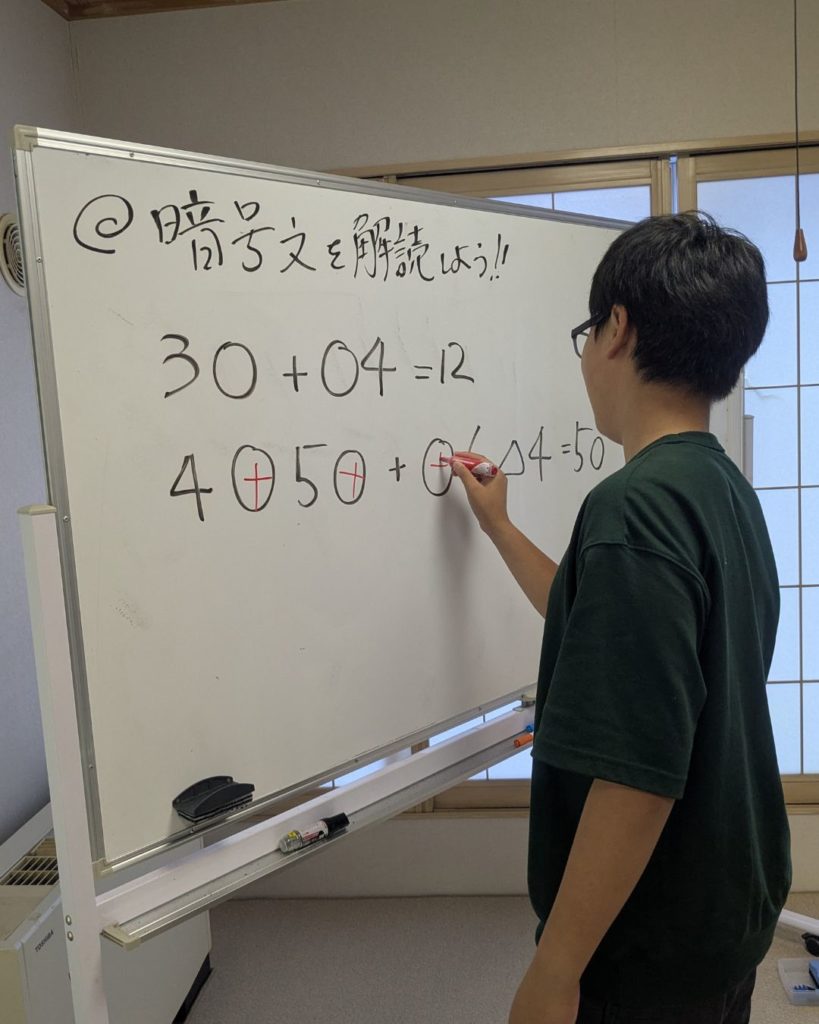 @ 暗号文を解読しよう!!
30+04=12
4〇5〇+〇 △4=50
TOSHIBA